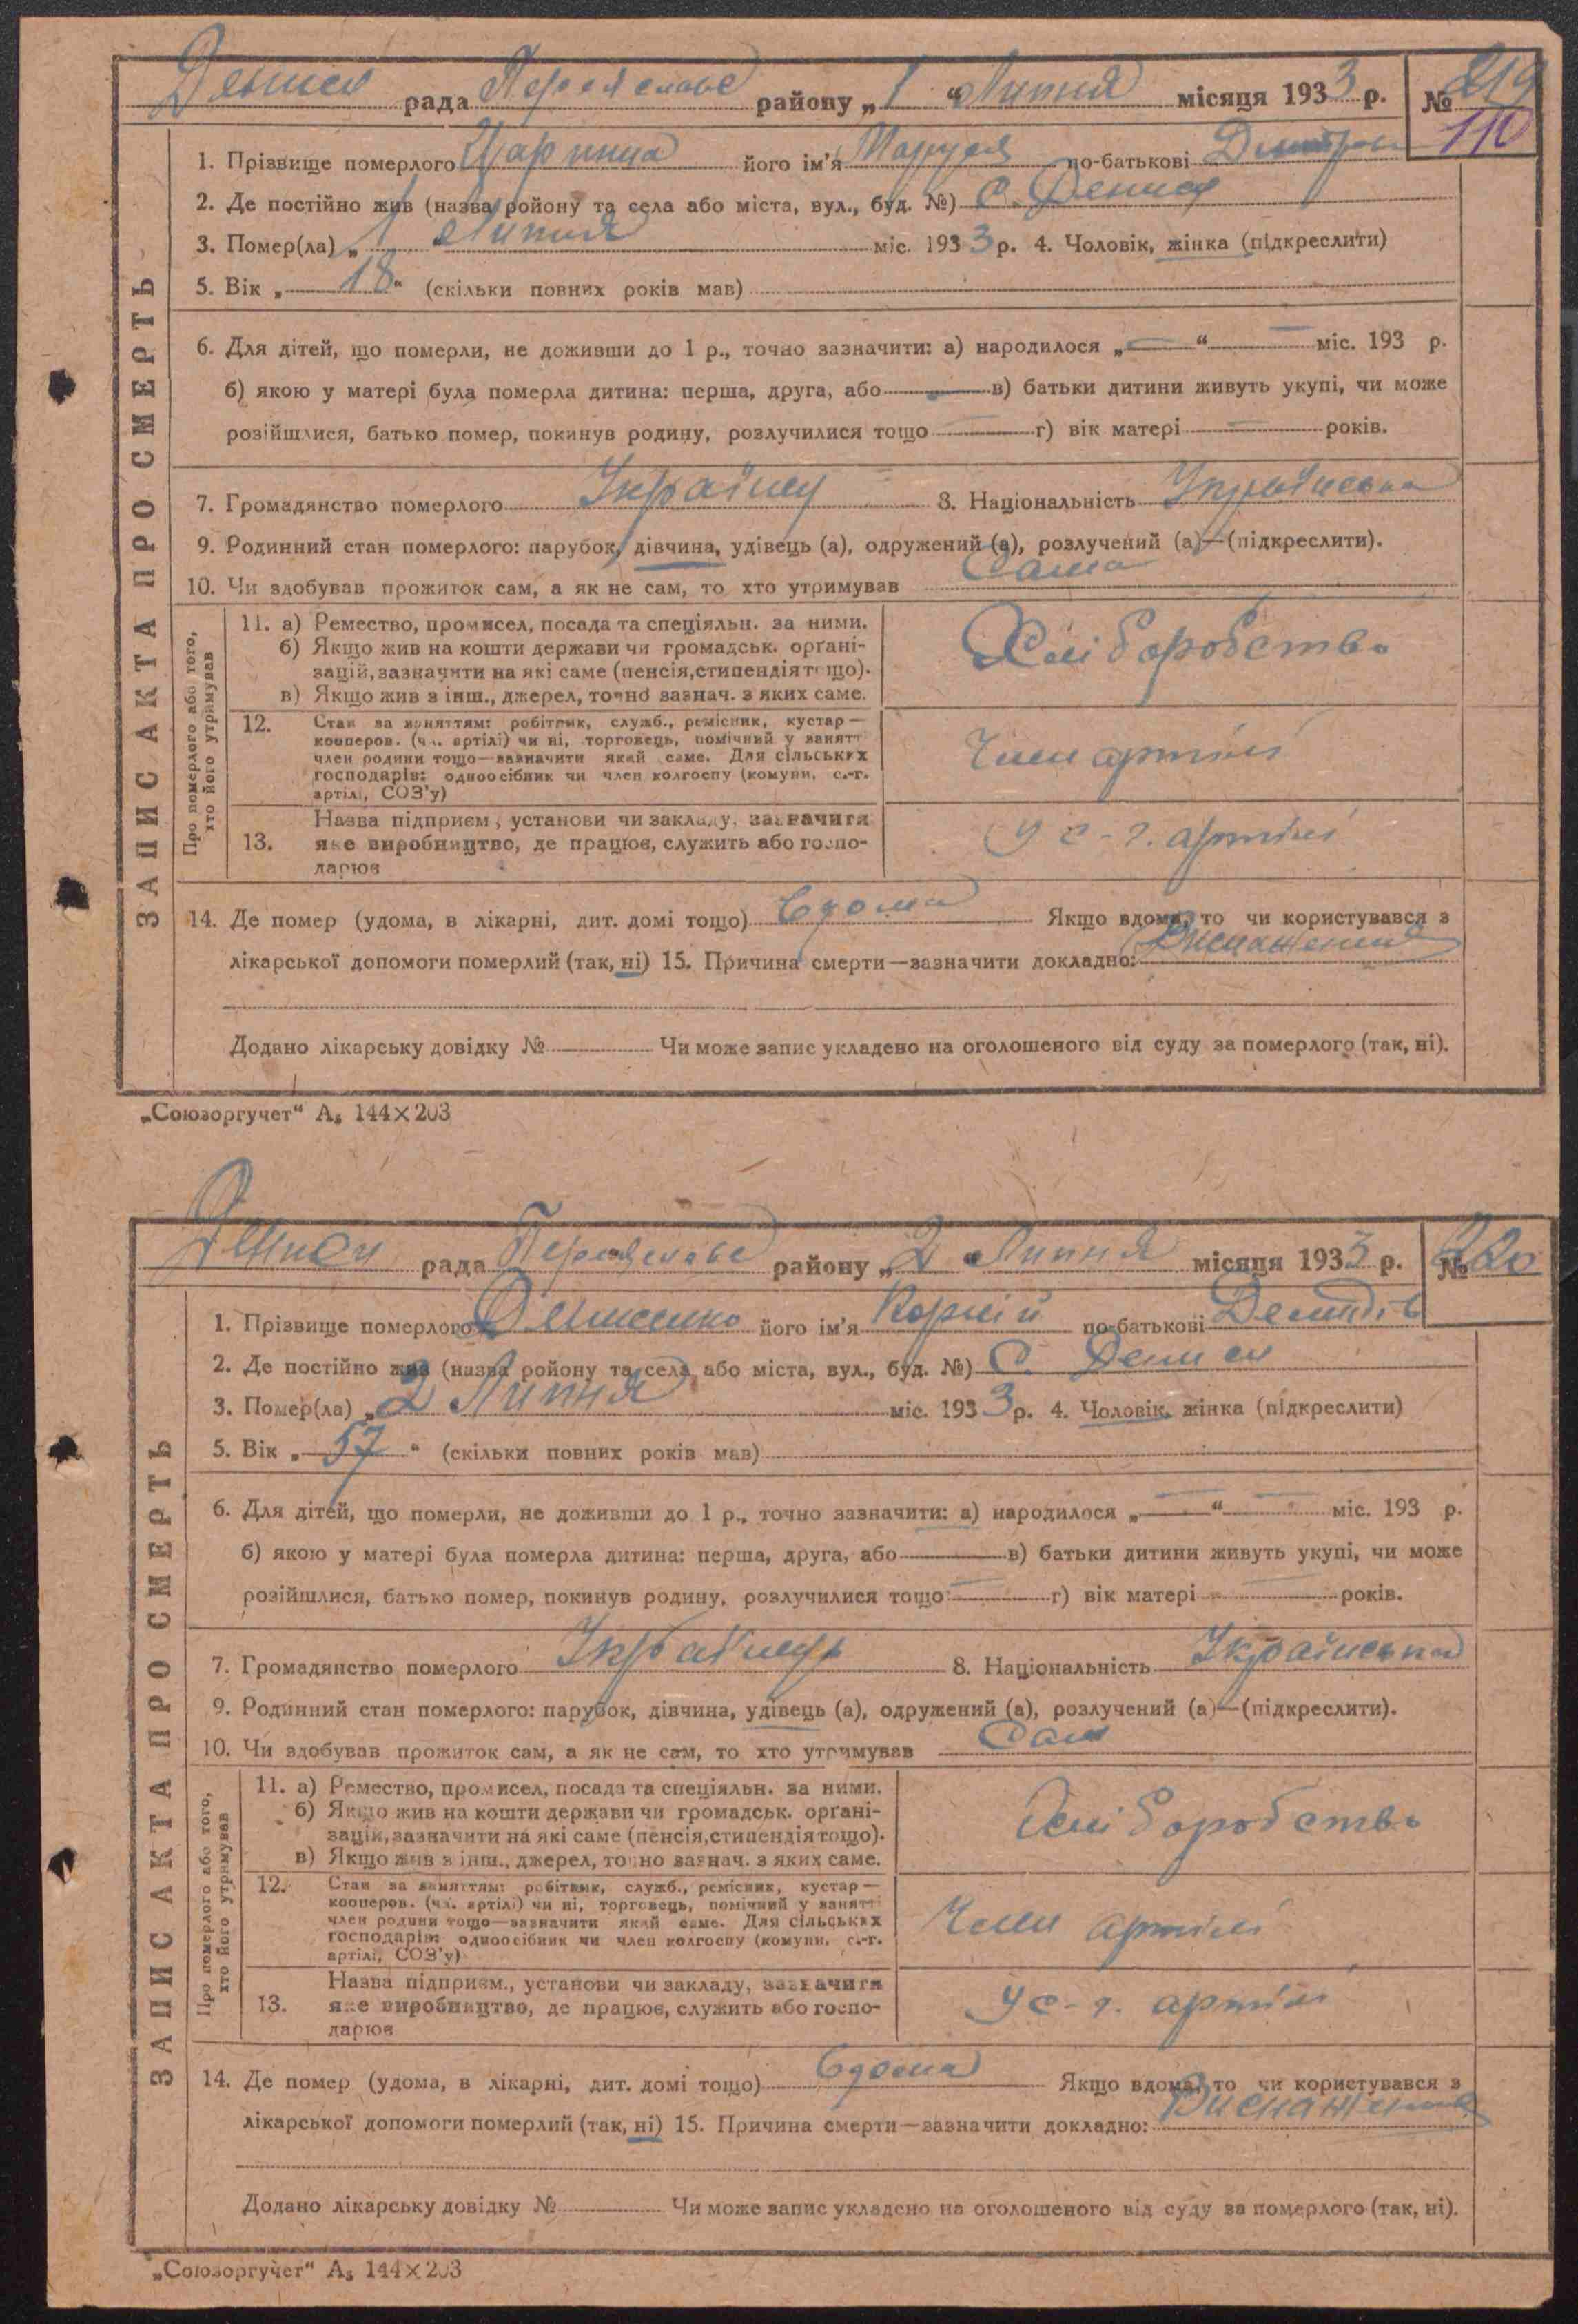 Дениси рада Переяславс району „ 1 “ Липня місяця 1933 р. № 219
110
1. Прізвище померлого Царина його ім'я Маруся по-батькові
2. Де постійно жив (назва ройону та села або міста, вул., буд. №) с. Дениси
3. Помер(ла) „ 1 Липня міс. 1933 р. 4. Чоловік, жінка (підкреслити)
5. Вік „ 18 “ (скільки повних років мав)
6. Для дітей, що померли, не доживши до 1 р., точно зазначити: а) народилося „ — “ — міс. 193 р.
б) якою у матері була померла дитина: перша, друга, або — в) батьки дитини живуть укупі, чи може
розійшлися, батько помер, покинув родину, розлучилися тощо — г) вік матері — років.
7. Громадянство померлого 8. Національність Українська
9. Родинний стан померлого: парубок, дівчина, удівець (а), одружений (а), розлучений (а)—(підкреслити).
10. Чи здобував прожиток сам, а як не сам, то хто утримував Сама
ЗАПИС АКТА ПРО СМЕРТЬ
Про померлого або того, хто його утримував
11. а) Ремество, промисел, посада та спеціяльн. за ними.
б) Якщо жив на кошти держави чи громадськ. орґані-
зацій, зазначити на які саме (пенсія, стипендія тощо).
в) Якщо жив з інш., джерел, точно зазнач. з яких саме.
Хліборобство
12. Стан за заняттям: робітник, служб., ремісник, кустар—
кооперов. (чл. артілі) чи ні, торговець, помічний у занятті
член родини тощо—зазначити який саме. Для сільських
господарів: одноосібник чи член колгоспу (комуни, с.-г.
артілі, СОЗ'у)
Член артілі
13. Назва підприєм., установи чи закладу, зазначити
яке виробництво, де працює, служить або госпо-
дарює
У с-г. артілі
14. Де помер (удома, в лікарні, дит. домі тощо) Вдома Якщо вдома, то чи користувався з
лікарської допомоги померлий (так, ні) 15. Причина смерти—зазначити докладно: Виснаження
Додано лікарську довідку № Чи може запис укладено на оголошеного від суду за померлого (так, ні).
„Союзоргучет“ А₅ 144×203
Дениси рада Переяславс району „ 2 “ Липня місяця 1933 р. № 220
1. Прізвище померлого Денисенко його ім'я Корній по-батькові Демидів
2. Де постійно жив (назва ройону та села або міста, вул., буд. №) С. Дениси
3. Помер(ла) „ 2 Липня міс. 1933 р. 4. Чоловік, жінка (підкреслити)
5. Вік „ 57 “ (скільки повних років мав)
6. Для дітей, що померли, не доживши до 1 р., точно зазначити: а) народилося „ — “ — міс. 193 р.
б) якою у матері була померла дитина: перша, друга, або — в) батьки дитини живуть укупі, чи може
розійшлися, батько помер, покинув родину, розлучилися тощо — г) вік матері — років.
7. Громадянство померлого 8. Національність Українська
9. Родинний стан померлого: парубок, дівчина, удівець (а), одружений (а), розлучений (а)—(підкреслити).
10. Чи здобував прожиток сам, а як не сам, то хто утримував Сам
ЗАПИС АКТА ПРО СМЕРТЬ
Про померлого або того, хто його утримував
11. а) Ремество, промисел, посада та спеціяльн. за ними.
б) Якщо жив на кошти держави чи громадськ. орґані-
зацій, зазначити на які саме (пенсія, стипендія тощо).
в) Якщо жив з інш., джерел, точно зазнач. з яких саме.
Хліборобство
12. Стан за заняттям: робітник, служб., ремісник, кустар—
кооперов. (чл. артілі) чи ні, торговець, помічний у занятті
член родини тощо—зазначити який саме. Для сільських
господарів: одноосібник чи член колгоспу (комуни, с.-г.
артілі, СОЗ'у)
Член артілі
13. Назва підприєм., установи чи закладу, зазначити
яке виробництво, де працює, служить або госпо-
дарює
У с-г. артілі
14. Де помер (удома, в лікарні, дит. домі тощо) Вдома Якщо вдома, то чи користувався з
лікарської допомоги померлий (так, ні) 15. Причина смерти—зазначити докладно: Виснаження
Додано лікарську довідку № Чи може запис укладено на оголошеного від суду за померлого (так, ні).
„Союзоргучет“ А₅ 144×203